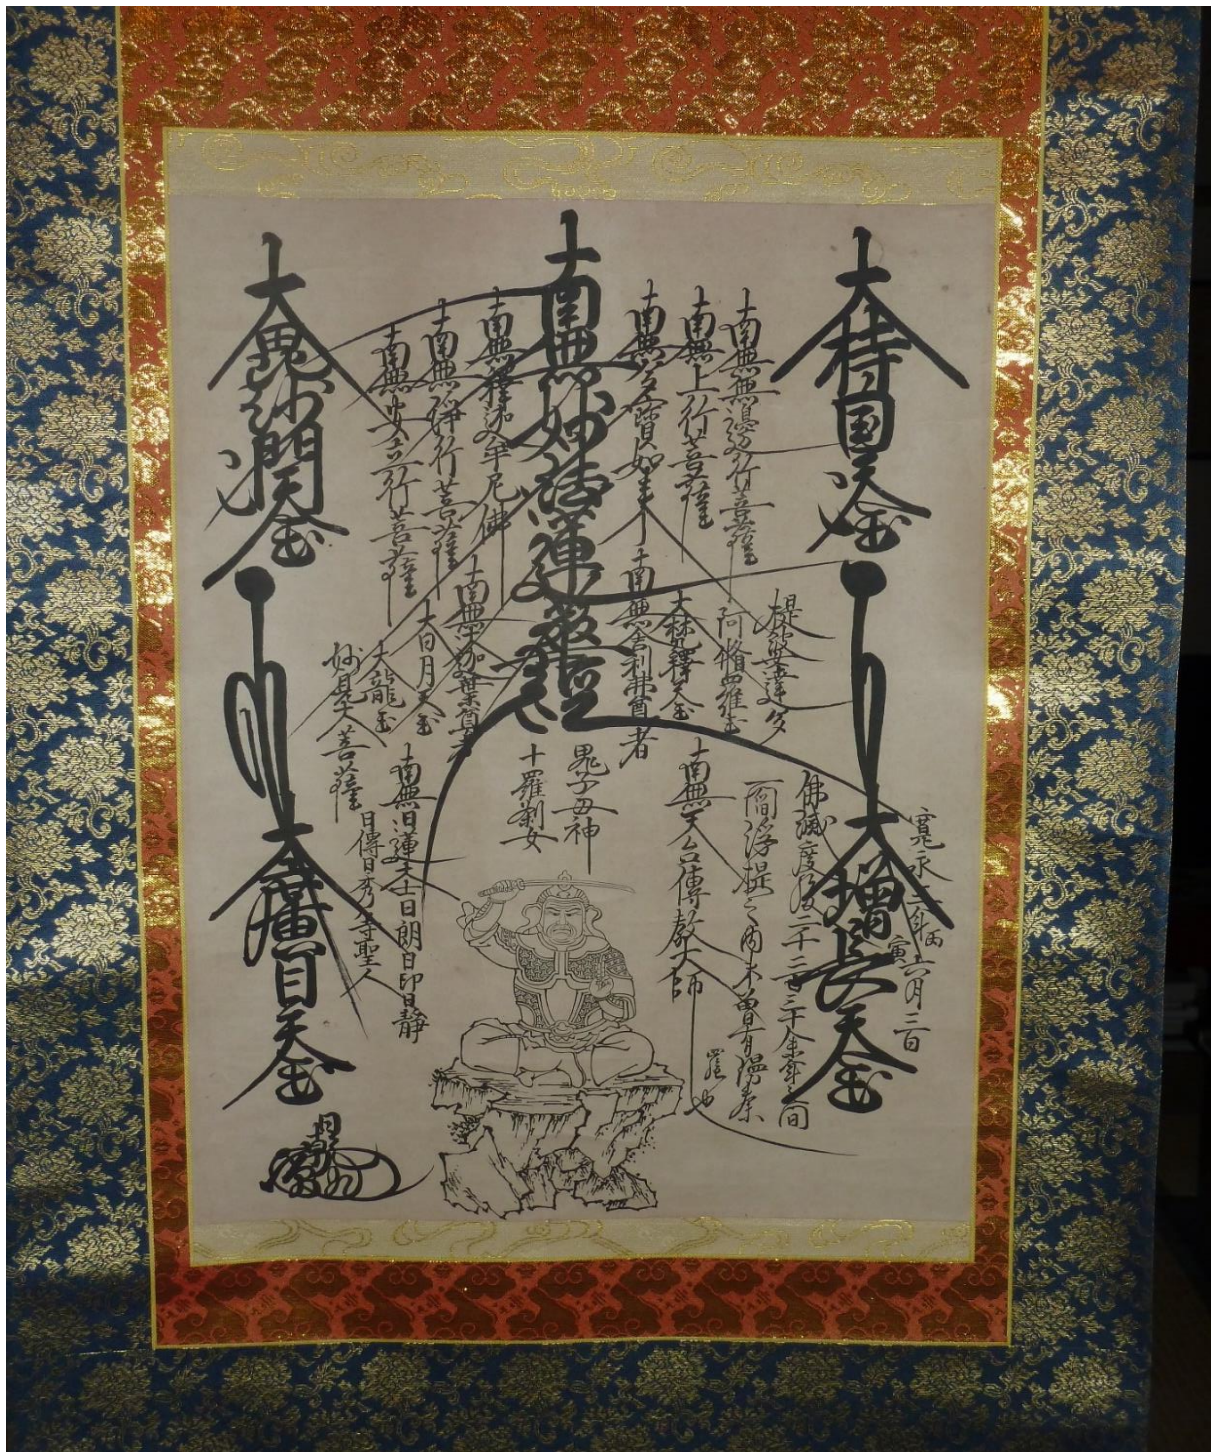 大持国天玉
大増長天玉
寛永三年丙寅六月二日
佛滅度後二千二百三十余年之間
一閻浮提之内未曽有漫荼
羅也
提婆達多
阿脩羅王
大梵釋天玉
南無無邊行菩薩
南無上行菩薩
南無多寶如来
南無舎利弗尊者
南無天台傳教大師
南無妙法蓮華経
鬼子母神
十羅刹女
南無釋迦牟尼佛
南無浄行菩薩
南無安立行菩薩
南無大迦葉尊者
大日月天玉
大龍玉
妙見大菩薩
南無日蓮大士日朗日印日静
日傳日秀等聖人
大毘沙門天玉
大廣目天玉